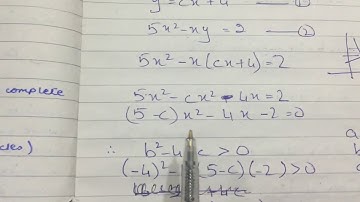 y = cx + 4 ①
5x² - xy = 2 ②
5x² - x(cx+4) = 2
complete
5x² - cx² - 4x = 2
(5-c)x² - 4x - 2 = 0
∴ b² - 4 c > 0
(-4)² - (5-c)(-2) > 0